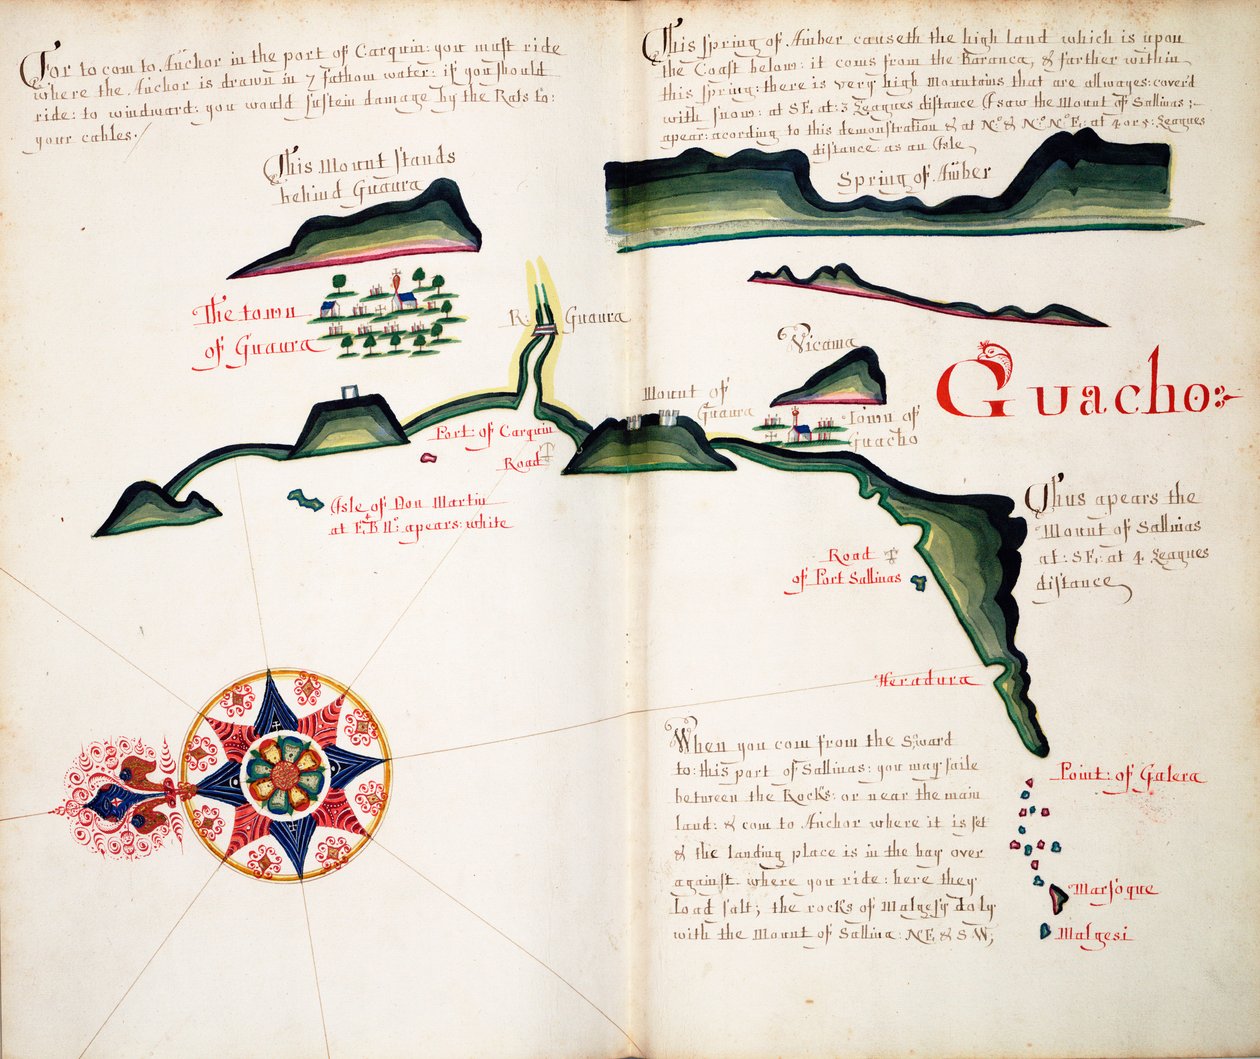 For to com to Anchor in the port of Carquin: you must ride
where the Anchor is drawn in 7 fathom water: if you should
ride: to windward: you would sustein damage by the Rats to:
your cables.
This Mount stands
behind Guaura
The town
of Guaura
R: Guaura
Port of Carquin
Road
Isle of Don Martin
at E B No: apears: white
This spring of Amber causeth the high land which is upon
the Coast below: it coms from the Baranca, & farther within
this spring: there is very high Mountains that are allwayes: cover'd
with snow: at SE: at: 3 Leagues distance I saw the Mount of Sallinas:
apear: acording to this demonstration & at No: & No: No E: at 4 or 5: Leagues
distance: as an Isle
Spring of Amber
Vicama
Guacho:
Mount of
Guaura
Town of
Guacho
Thus apears the
Mount of Sallinas
at: SE: at 4 Leagues
distance
Road
of Port Sallinas
Heradura
When you com from the Soward
to: this part of Sallinas: you may saile
between the Rocks: or near the main
land: & com to Anchor where it is set
& the landing place is in the bay over
against where you ride: here they
Load salt; the rocks of Malgesy daly
with the Mount of Sallina: NE & SW;
Point: of Galera
Marsoque
Malgesi